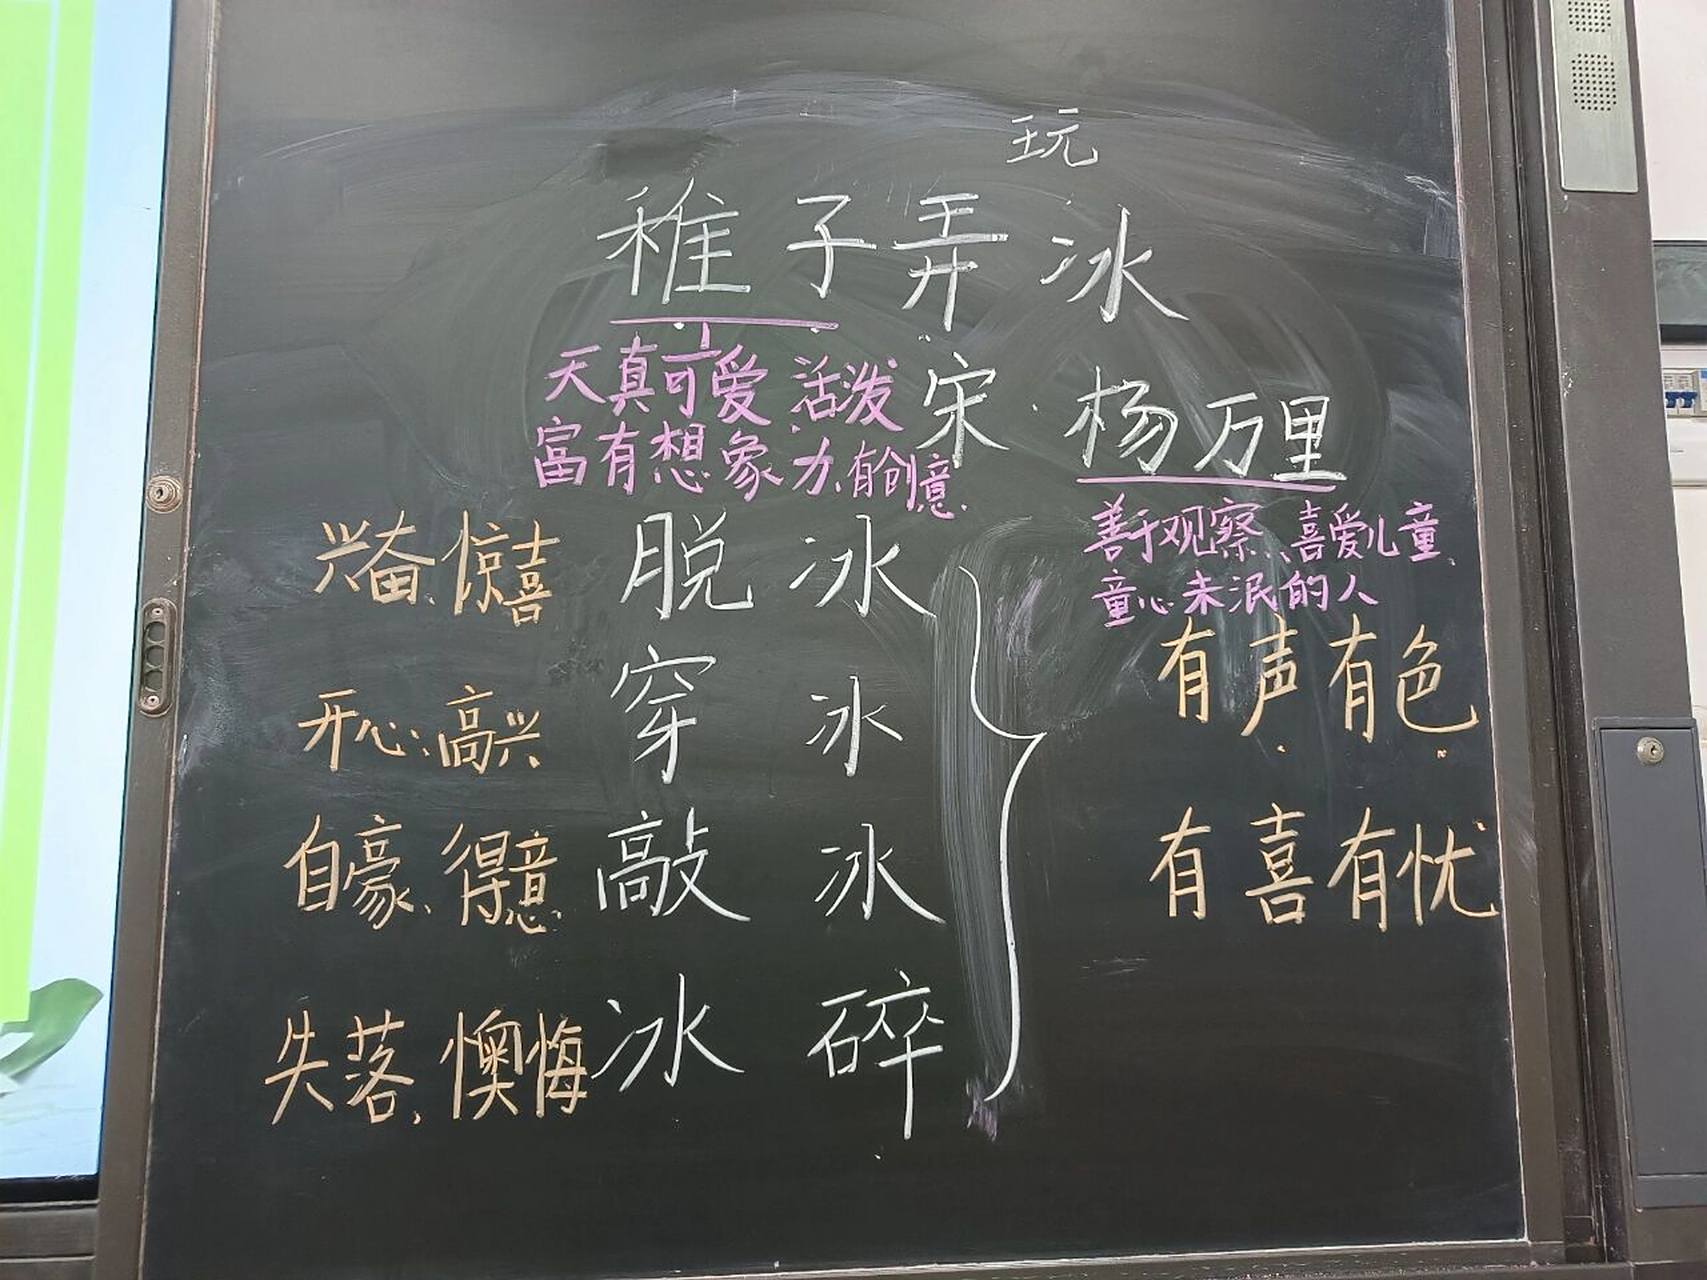 玩
稚子弄冰
天真可爱 活泼
宋·杨万里
富有想象力、有创意
善于观察、喜爱儿童
童心未泯的人
兴奋、惊喜 脱冰
有声有色
开心、高兴 穿冰
自豪、得意 敲冰
有喜有忧
失落、懊悔 冰碎